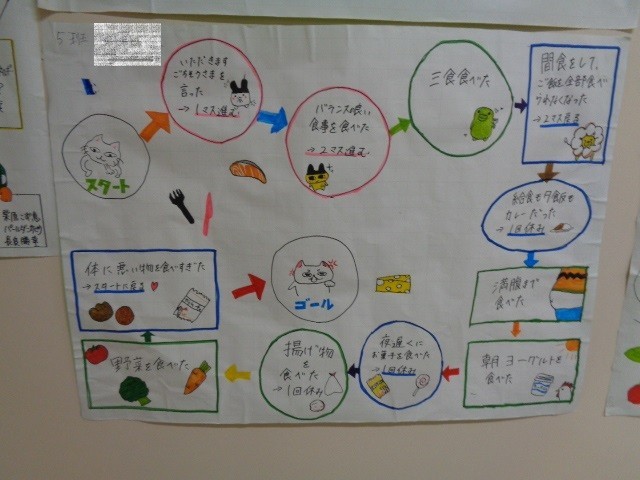 5班
いただきます
ごちそうさまを
言った
→1マス進む
バランスの良い
食事を食べた
→2マス進む
三食食べた
間食をして、
ご飯を全部食べ
られなくなった
→2マス戻る
スタート
給食も夕飯も
カレーだった
→1回休み
満腹まで
食べた
朝ヨーグルトを
食べた
夜遅くに
お菓子を食べた
→1回休み
揚げ物を
食べた
→1回休み
野菜を食べた
体に悪い物を食べすぎた
→スタートに戻る
ゴール